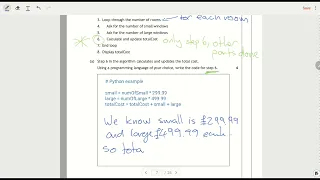 3. Loop through the number of rooms
for each room
4. Ask for the number of small windows
5. Ask for the number of large windows
6. Calculate and update totalCost
only step 6, other
parts done
7. End loop
8. Display totalCost
Step 6 in the algorithm calculates and updates the total cost.
Using a programming language of your choice, write the code for step 6.
4
# Python example
small = numOfSmall * 299.99
large = numOfLarge * 499.99
totalCost = totalCost + small + large
We know small is £299.99
and large £499.99 each.
so tota